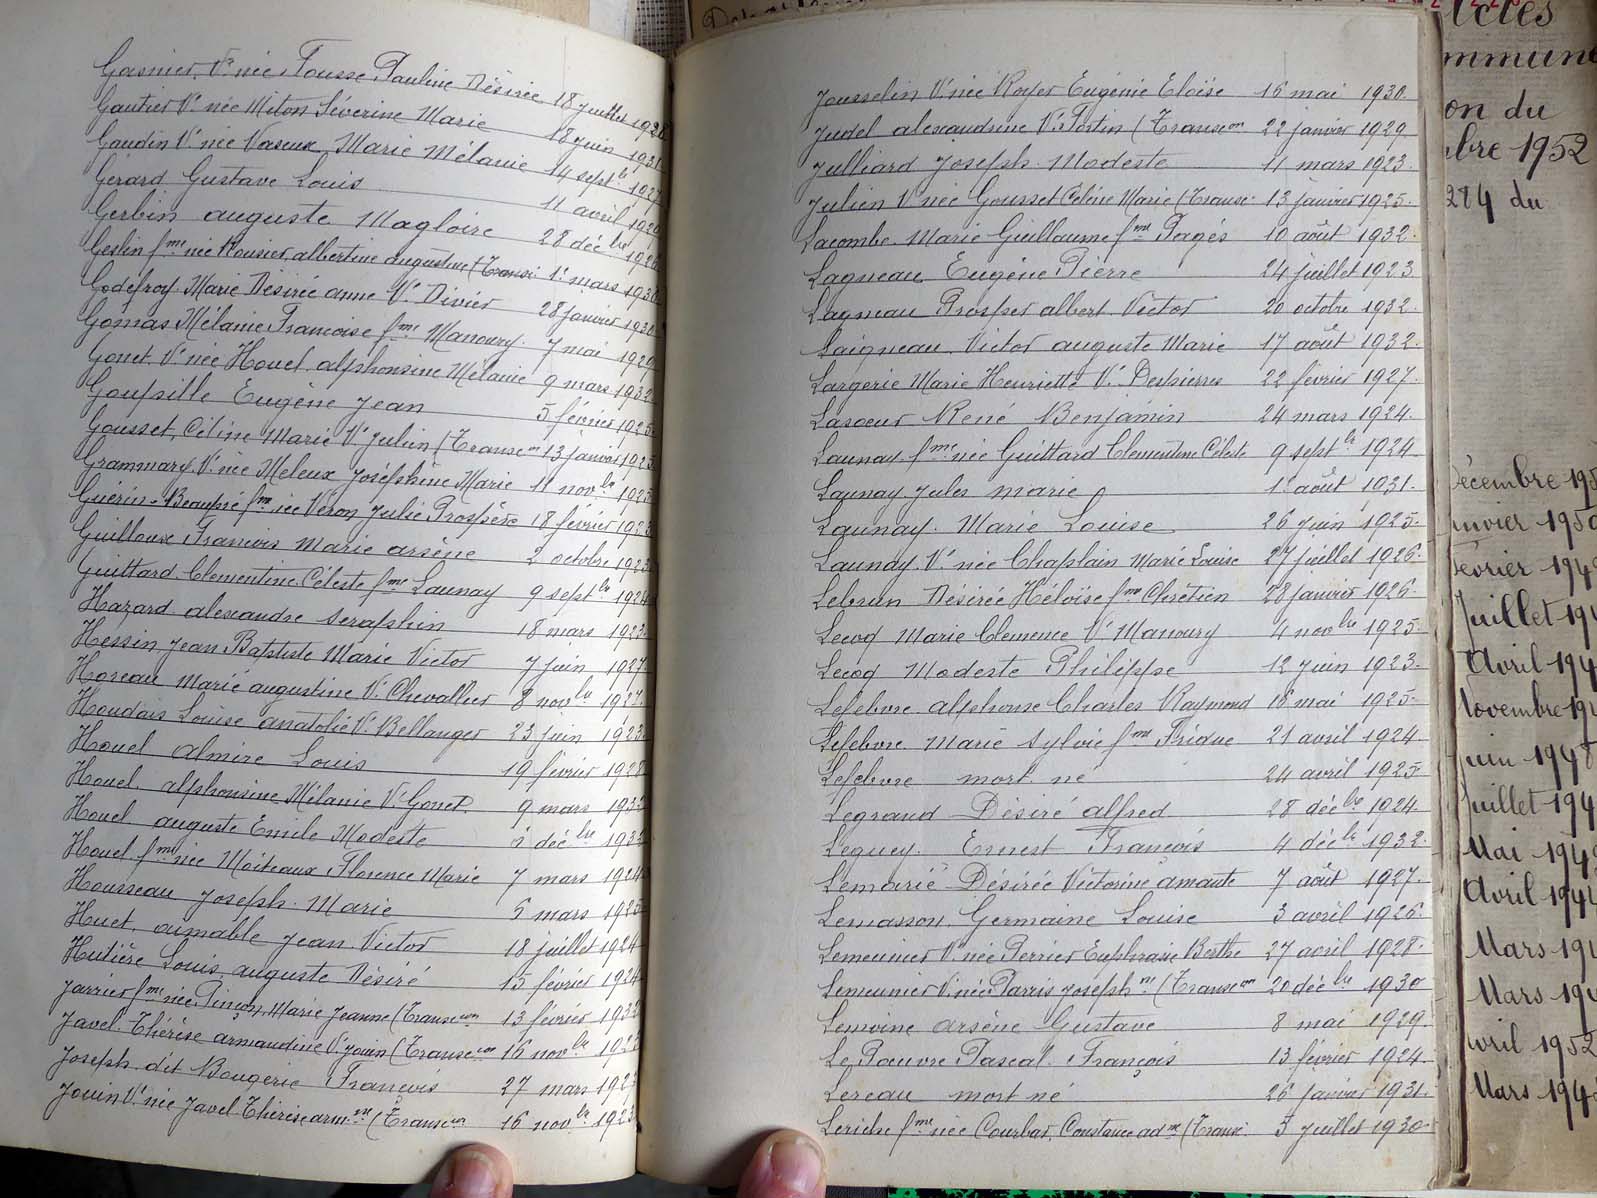 Gasnier Vᵉ née Fousse Pauline Désirée 18 juillet
Gautier Vᵉ née Miton Séverine Marie 18 juin 1931
Gaudin Vᵉ née Vaseux Marie Mélanie 14 septᵇʳᵉ 1927
Gérard Gustave Louis 11 avril
Gerbin auguste Magloire 28 décᵇʳᵉ 1926
Geslin fᵐᵉ née Rousier albertine augustine (Transcᵒⁿ 1ᵉʳ mars 1930
Godefroy Marie Désirée anne Vᵉ Divier 28 janvier 1930
Gomas Mélanie Françoise fᵐᵉ Manoury 7 mai 1929
Gonet Vᵉ née Houel alphonsine Mélanie 9 mars 1932
Goupille Eugène Jean 5 février 1925
Gousset, Céline Marie Vᵉ Julien (Transcᵒⁿ 13 janvier 1925
Grammary Vᵉ née Meleux Joséphine Marie 11 novᵇʳᵉ 1923
Guérin-Beaupré fᵐᵉ née Véron Julie Prospère 18 février 1923
Guilloux François Marie arsène 2 octobre 1923
Guittard Clementine Céleste fᵐᵉ Launay 9 septᵇʳᵉ 1924
Hazard alexandre seraphin 18 mars 1923
Hessin Jean Baptiste Marie Victor 7 juin 1927
Hoseau Marie augustine Vᵉ Chevallier 8 novᵇʳᵉ 1927
Houdais Louise anatolie Vᵉ Bellanger 23 juin 1923
Houel almire Louis 19 février 1928
Houel alphonsine Mélanie Vᵉ Gonet 9 mars 1932
Houel auguste Emile Modeste décᵇʳᵉ 1932
Houel fᵐᵉ née Moiteaux Florence Marie 7 mars 1924
Housseau Joseph Marie 5 mars 1925
Huet aimable Jean Victor 18 juillet 1924
Hutière Louis auguste Désiré 15 février 1924
Jarrier fᵐᵉ née Pinçon, Marie Jeanne (Transcᵒⁿ 13 février 1932
Javel Thérèse armandine Vᵉ Jouin (Transcᵒⁿ 16 novᵇʳᵉ 1923
Joseph dit Bougerie François 27 mars 1923
Jouin Vᵉ née Javel Thérèse armⁿᵉ (Transcᵒⁿ 16 novᵇʳᵉ 1923
Jousselin Vᵉ née Royer Eugénie Eloïse 16 mai 1930.
Judel alexandrine Vᵉ Fortin (Transcᵒⁿ 22 janvier 1929
Julliard Joseph Modeste 11 mars 1923.
Julien Vᵉ née Gousset Céline Marie (Transc. 13 janvier 1925.
Lacombe Marie Guillaume fᵐᵉ Pagés 10 août 1932.
Lagneau Eugène Pierre 24 juillet 1923
Lagneau Prosper albert Victor 20 octobre 1932.
Laigneau Victor auguste Marie 17 août 1932.
Largerie Marie Henriette Vᵉ Despierres 22 février 1927.
Lasoeur René Benjamin 24 mars 1924.
Launay fᵐᵉ née Guittard Clementine Céleste 9 septᵇʳᵉ 1924
Launay Jules marie 1ᵉʳ août 1931.
Launay Marie Louise 26 juin 1925.
Launay Vᵉ née Chaplain Marie Louise 27 juillet 1926.
Lebrun Désirée Héloïse fᵐᵉ Chrétien 28 janvier 1926.
Lecoq Marie Clemence Vᵉ Manoury 4 novᵇʳᵉ 1925.
Lecoq Modeste Philippe 12 juin 1923.
Lefebvre alphonse Charles Raymond 16 mai 1925.
Lefebvre Marie Sylvie fᵐᵉ Frique 21 avril 1924
Lefebvre mort né 24 avril 1925
Legrand Désiré alfred 28 décᵇʳᵉ 1924
Leguey Ernest François 4 décᵇʳᵉ 1932.
Lemarié Désirée Victorine amante 7 août 1927.
Lemasson Germaine Louise 3 avril 1926.
Lemeunier Vᵉ née Perrier Euphrasie Berthe 27 avril 1928.
Lemeunier Vᵉ née Parris Josephⁿᵉ (Transcᵒⁿ 20 décᵇʳᵉ 1930
Lemoine arsène Gustave 8 mai 1929.
Le Pauvre Pascal François 13 février 1924
Lereau mort né 26 janvier 1931.
Leriche fᵐᵉ née Courbar, Constance adᵉ (Transc. 3 juillet 1930
Actes
on du
1952
284 du
Décembre
Janvier 1950
Février
Juillet
Avril
Novembre
Juin 1948
Juillet
Mai
Avril
Mars
Mars
Avril 1952
Mars